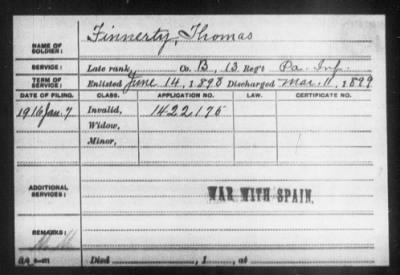 NAME OF SOLDIER: Finnerty, Thomas
SERVICE: Late rank, Co. B, 13 Reg't Pa. Inf.
TERM OF SERVICE: Enlisted June 14, 1898 Discharged Mar. 11, 1899
DATE OF FILING. CLASS. APPLICATION NO. LAW. CERTIFICATE NO.
1916 Jan. 7 Invalid, 1422175
Widow,
Minor,
ADDITIONAL SERVICES: WAR WITH SPAIN.
REMARKS:
Died , 1 , at